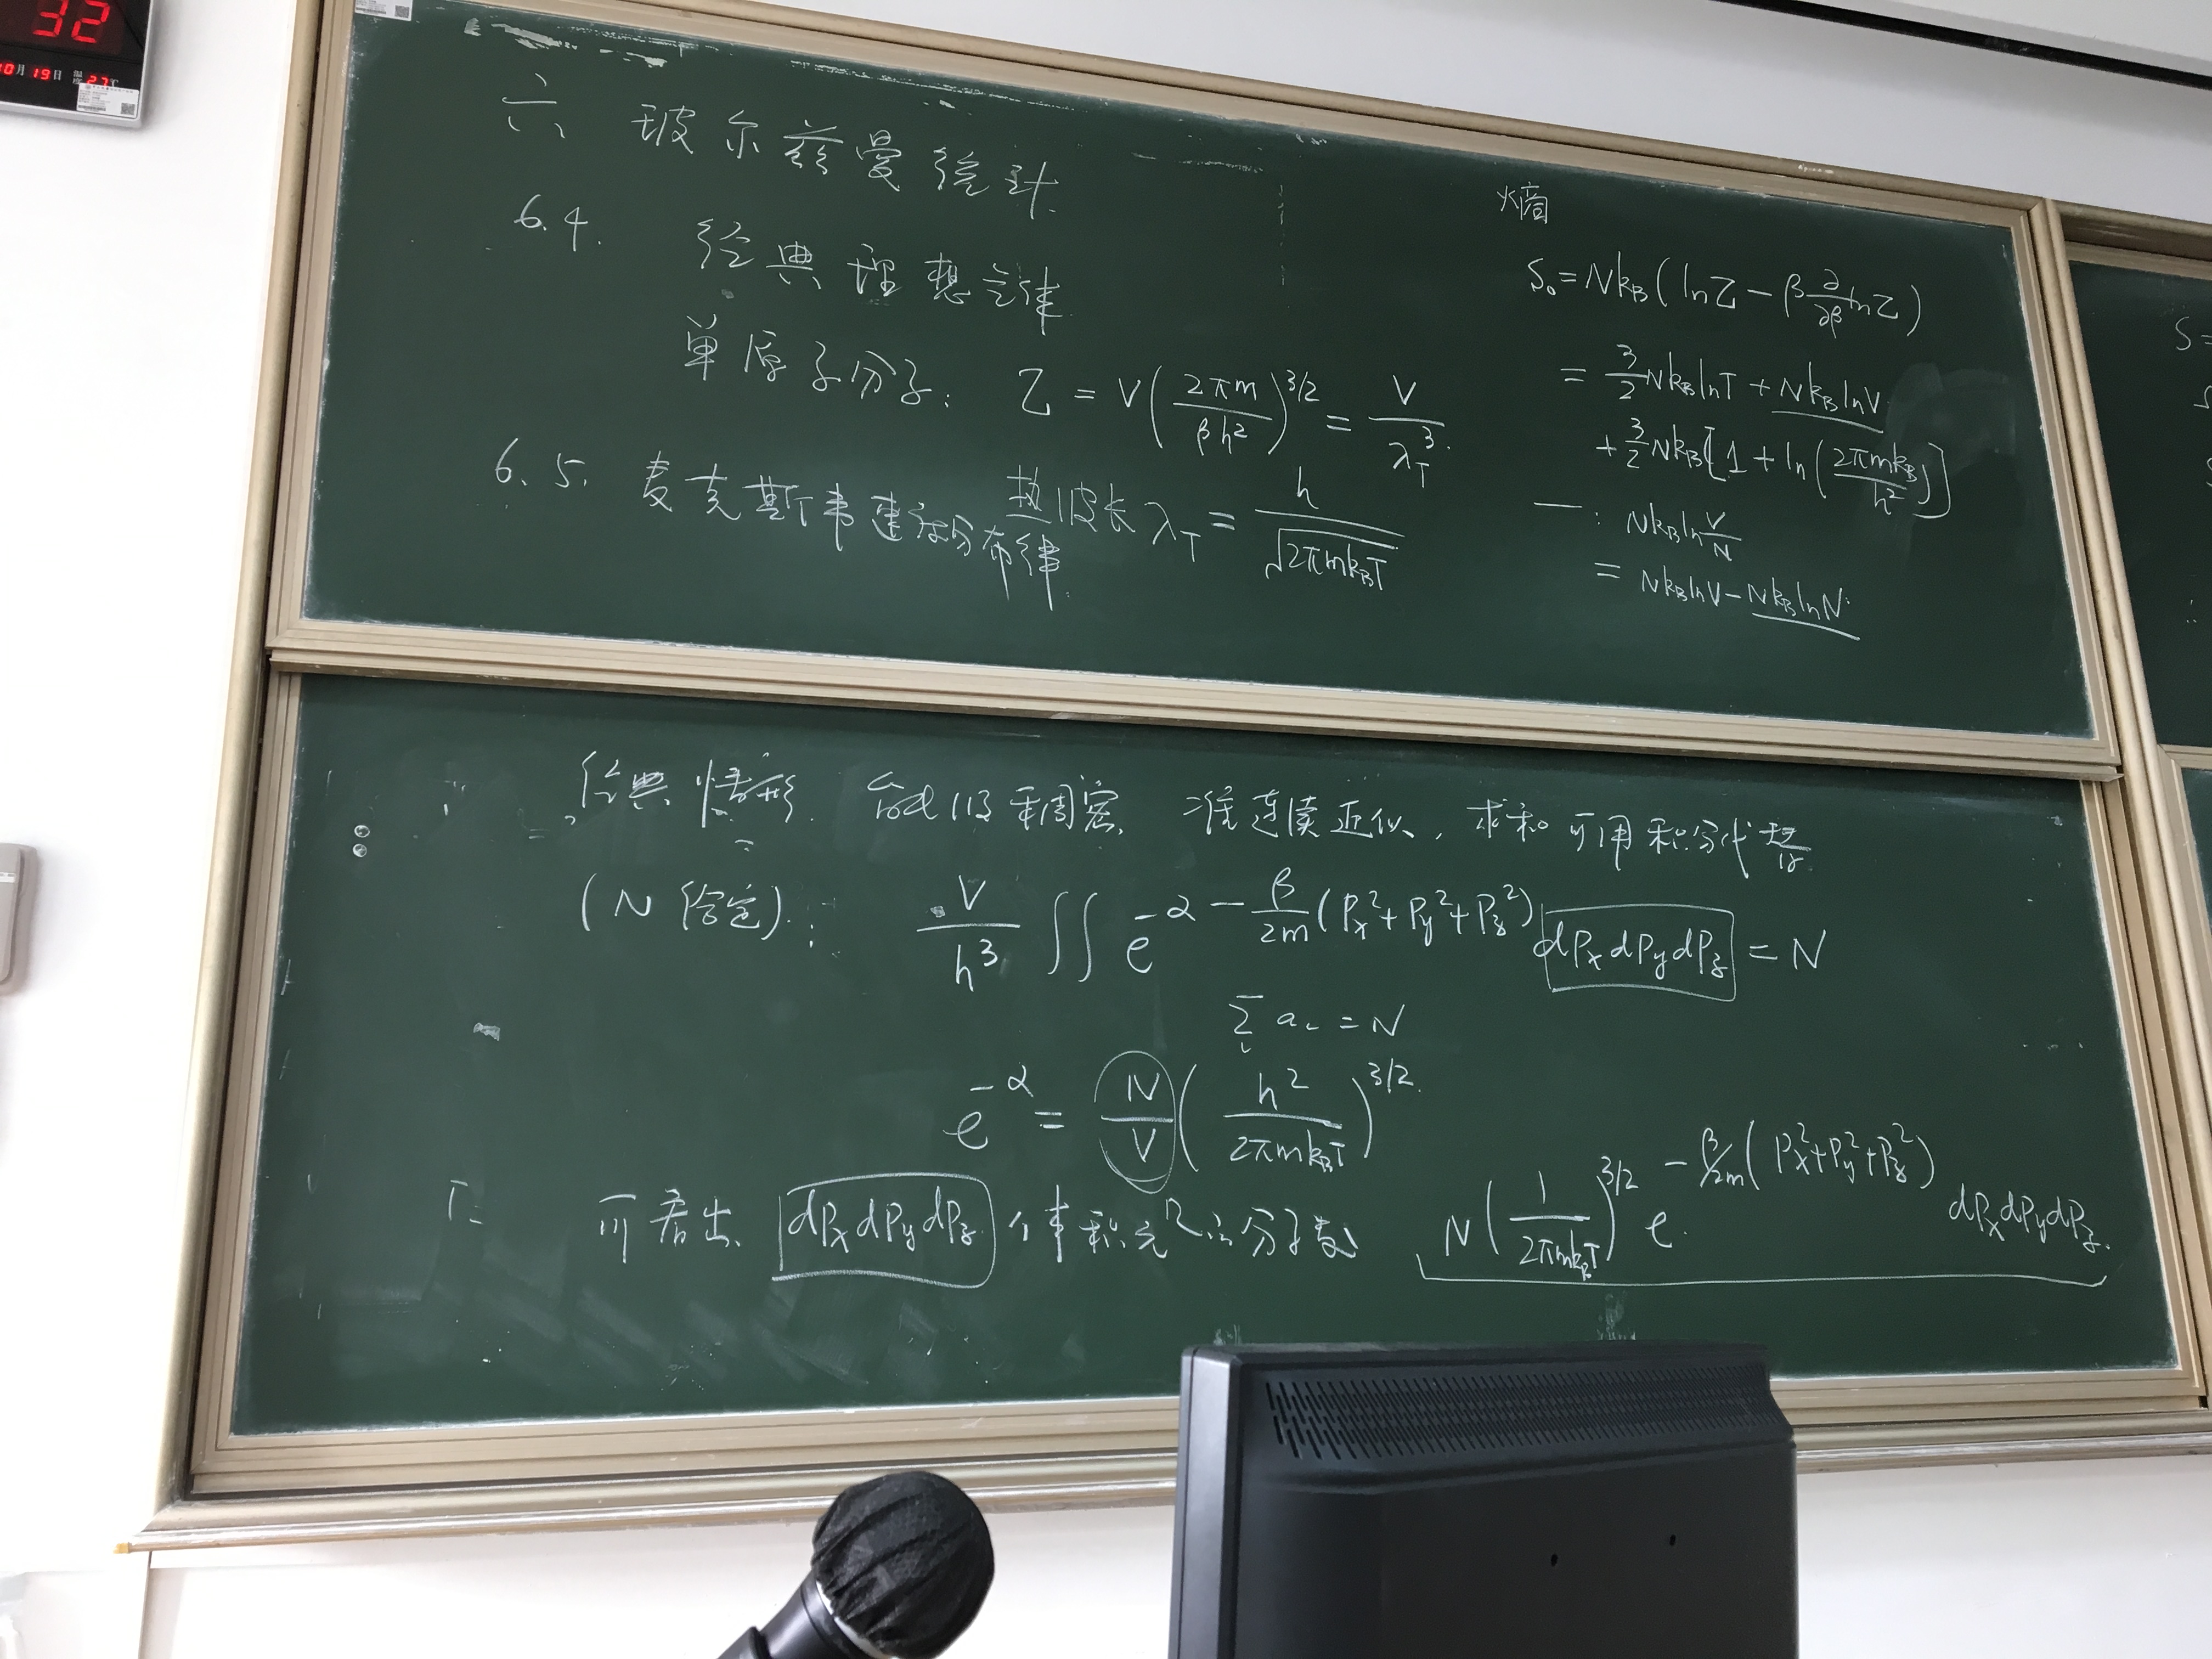 32
10月19日 温度 27℃
六 玻尔兹曼统计
6.4. 经典理想气体
单原子分子: Z = V(2πm/βh²)^{3/2} = V/λ_T³.
热波长 λ_T = h/√(2πmk_BT)
6.5. 麦克斯韦速度分布律.
熵
S₀ = Nk_B(lnZ − β ∂/∂β lnZ)
= 3/2 Nk_B lnT + Nk_B lnV
+ 3/2 Nk_B[1 + ln(2πmk_B/h²)]
一: Nk_B ln V/N
= Nk_B lnV − Nk_B lnN.
S=
经典情形. 准连续近似, 求和可用积分代替
(N给定): V/h³ ∬ e^{−α − β/2m (P_x²+P_y²+P_z²)} dP_x dP_y dP_z = N
∑_l a_l = N
e^{−α} = N/V (h²/2πmk_BT)^{3/2}.
可看出 dP_x dP_y dP_z 体积元内的分子数 N(1/2πmk_BT)^{3/2} e^{−β/2m (P_x²+P_y²+P_z²)} dP_x dP_y dP_z.